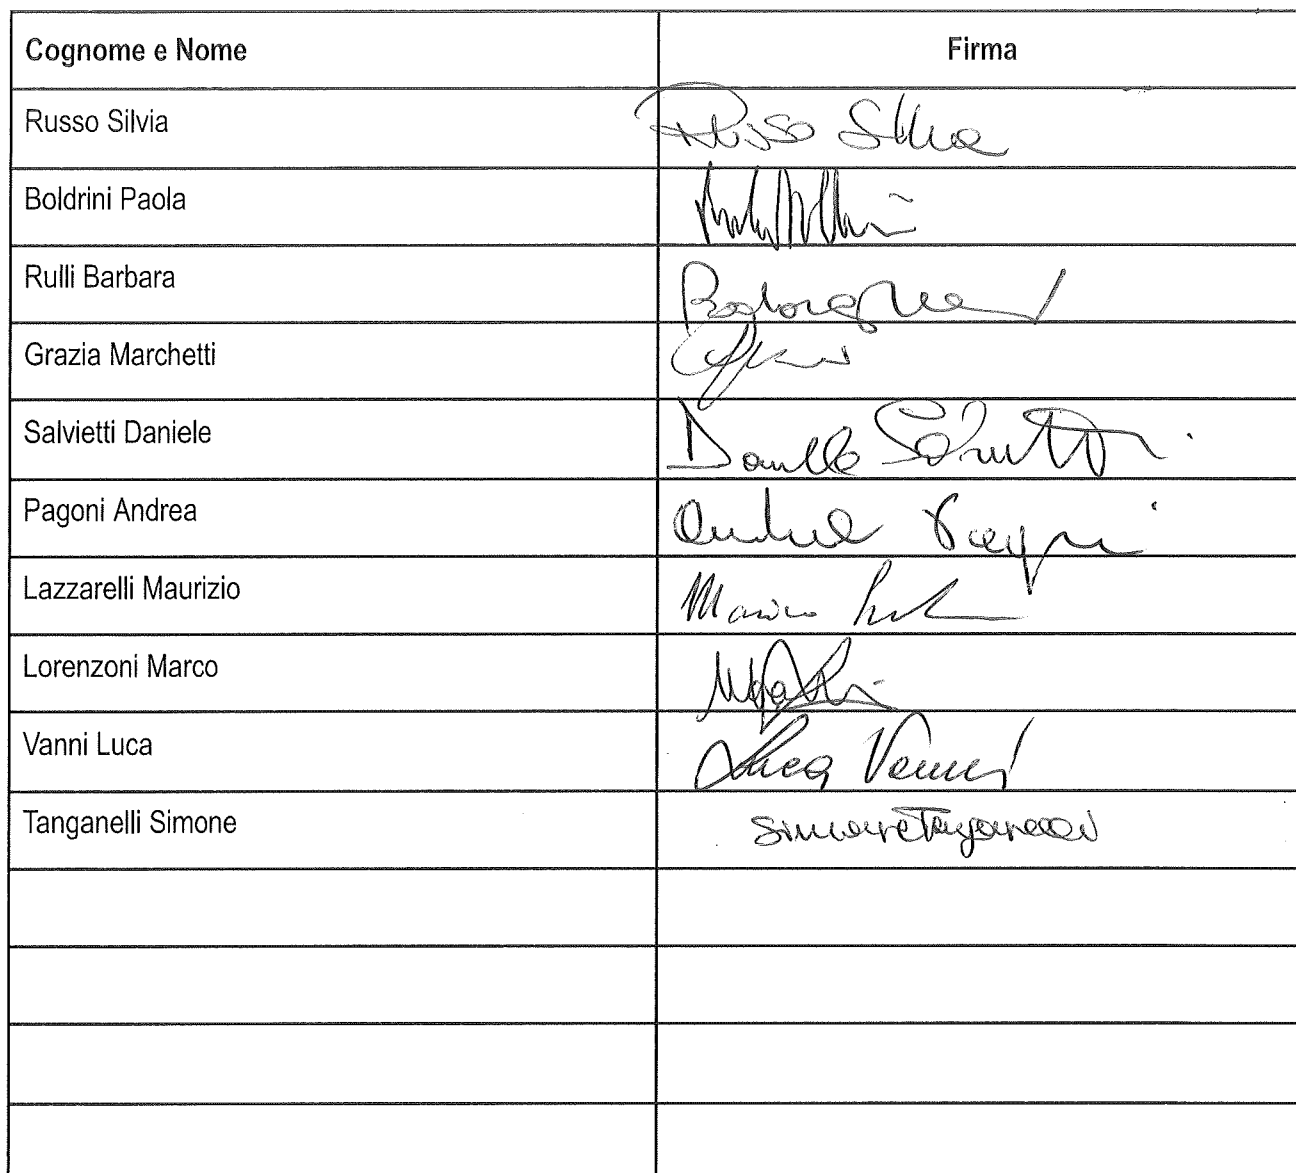 Cognome e Nome Firma
Russo Silvia Russo Silvia
Boldrini Paola
Rulli Barbara
Grazia Marchetti
Salvietti Daniele Daniele Salvietti
Pagoni Andrea Andrea Pagoni
Lazzarelli Maurizio
Lorenzoni Marco
Vanni Luca Luca Vanni
Tanganelli Simone Simone Tanganelli